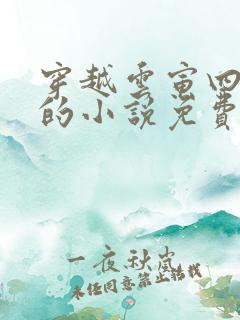 穿越雲寅四
的小說免費
一夜秋嵐
未經同意禁止轉載